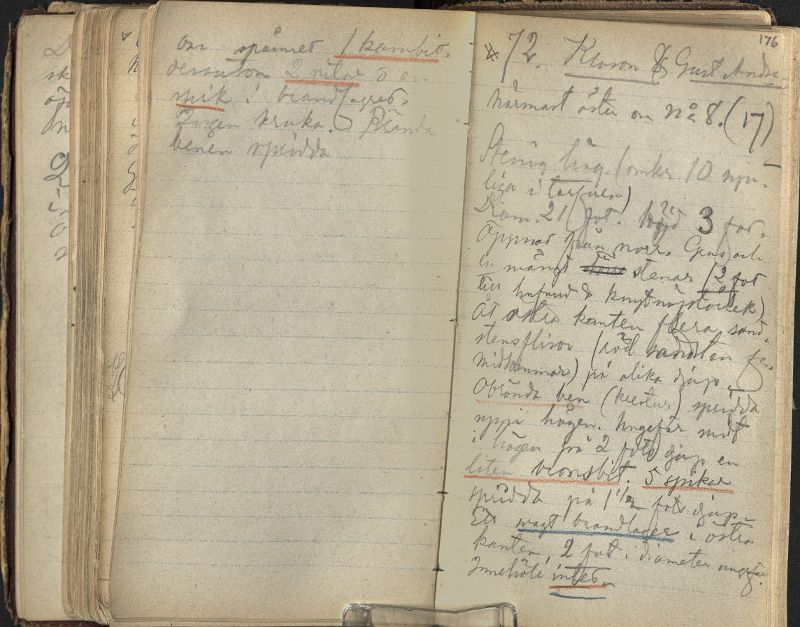 om spännet 1 kambit.
dessutom 2 nitar o en
spik i brand lagret.
Ingen kruka. Brända
benen spridda
176
72. Klason & Gust. Anders
närmast öster om No 8. (17)
Stenig hög (omkr. 10 syn-
liga i torfven)
Diam. 21 fot. höjd 3 fot.
Öppnad från norr. Grus och
en mängd stenar (2 fot
till hufvud & knytnäfstorlek)
At östra kanten flera sand-
stensflisor (röd sandsten fr.
Midsommar) på olika djup.
Obrända ben (kreatur) spridda
uppi högen. Ungefär midt
i högen på 2 fots djup en
liten bronsbit. 5 spikar
spridda på 1 1/2 fots djup.
Ett svagt brandlager i östra
kanten, 2 fot i diameter ungefär.
Innehöll intet.